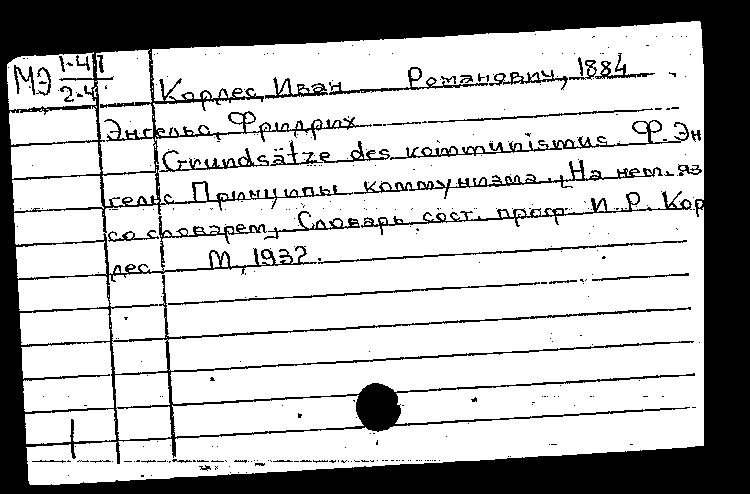 МЭ 1-4
2-4
Корлес, Иван Романович, 1884
Энгельс, Фридрих
Grundsätze des kommunismus. Ф. Эн
гельс Принципы коммунизма. [На нем. яз
со словарем, Словарь сост. проф. И. Р. Кор
лес М, 1932.